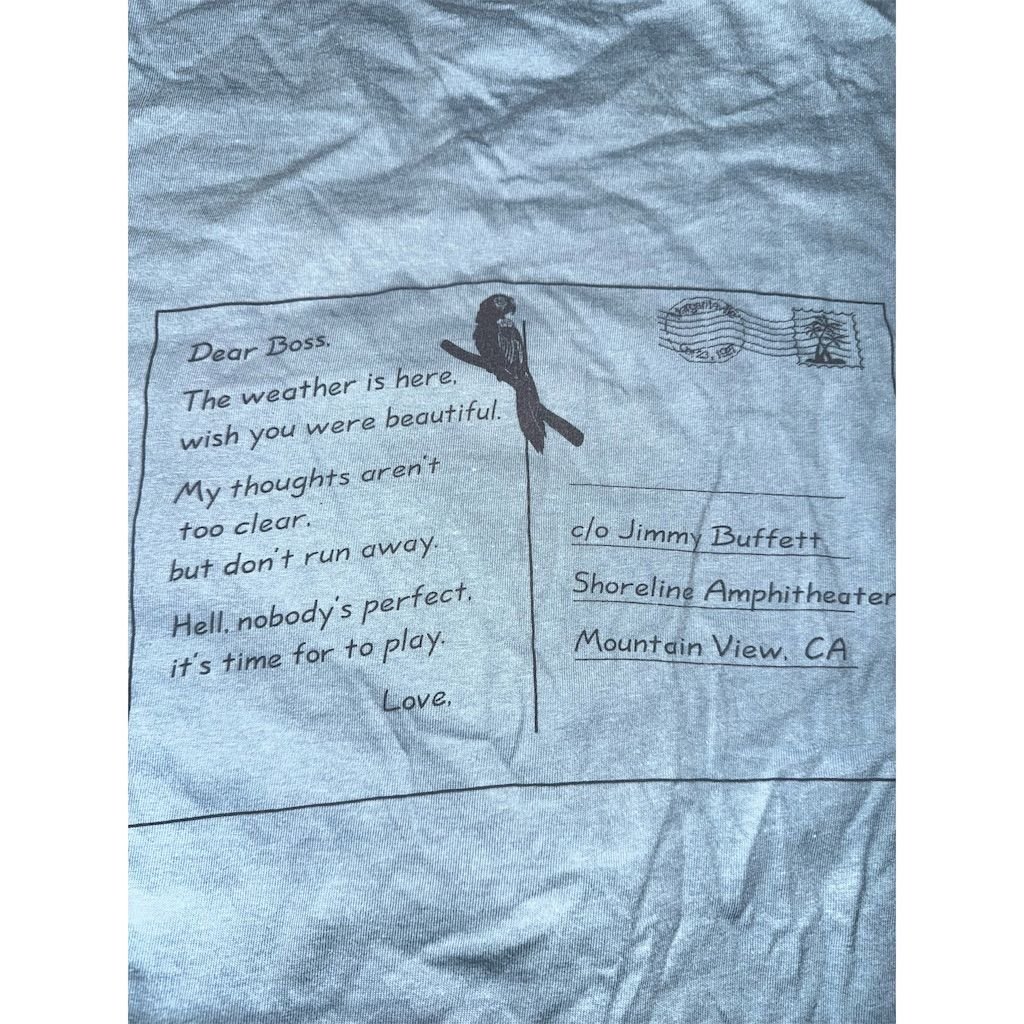 Dear Boss,
The weather is here,
wish you were beautiful.
My thoughts aren't
too clear,
but don't run away.
Hell, nobody's perfect,
it's time for to play.
Love,
Margaritaville
c/o Jimmy Buffett
Shoreline Amphitheater
Mountain View, CA